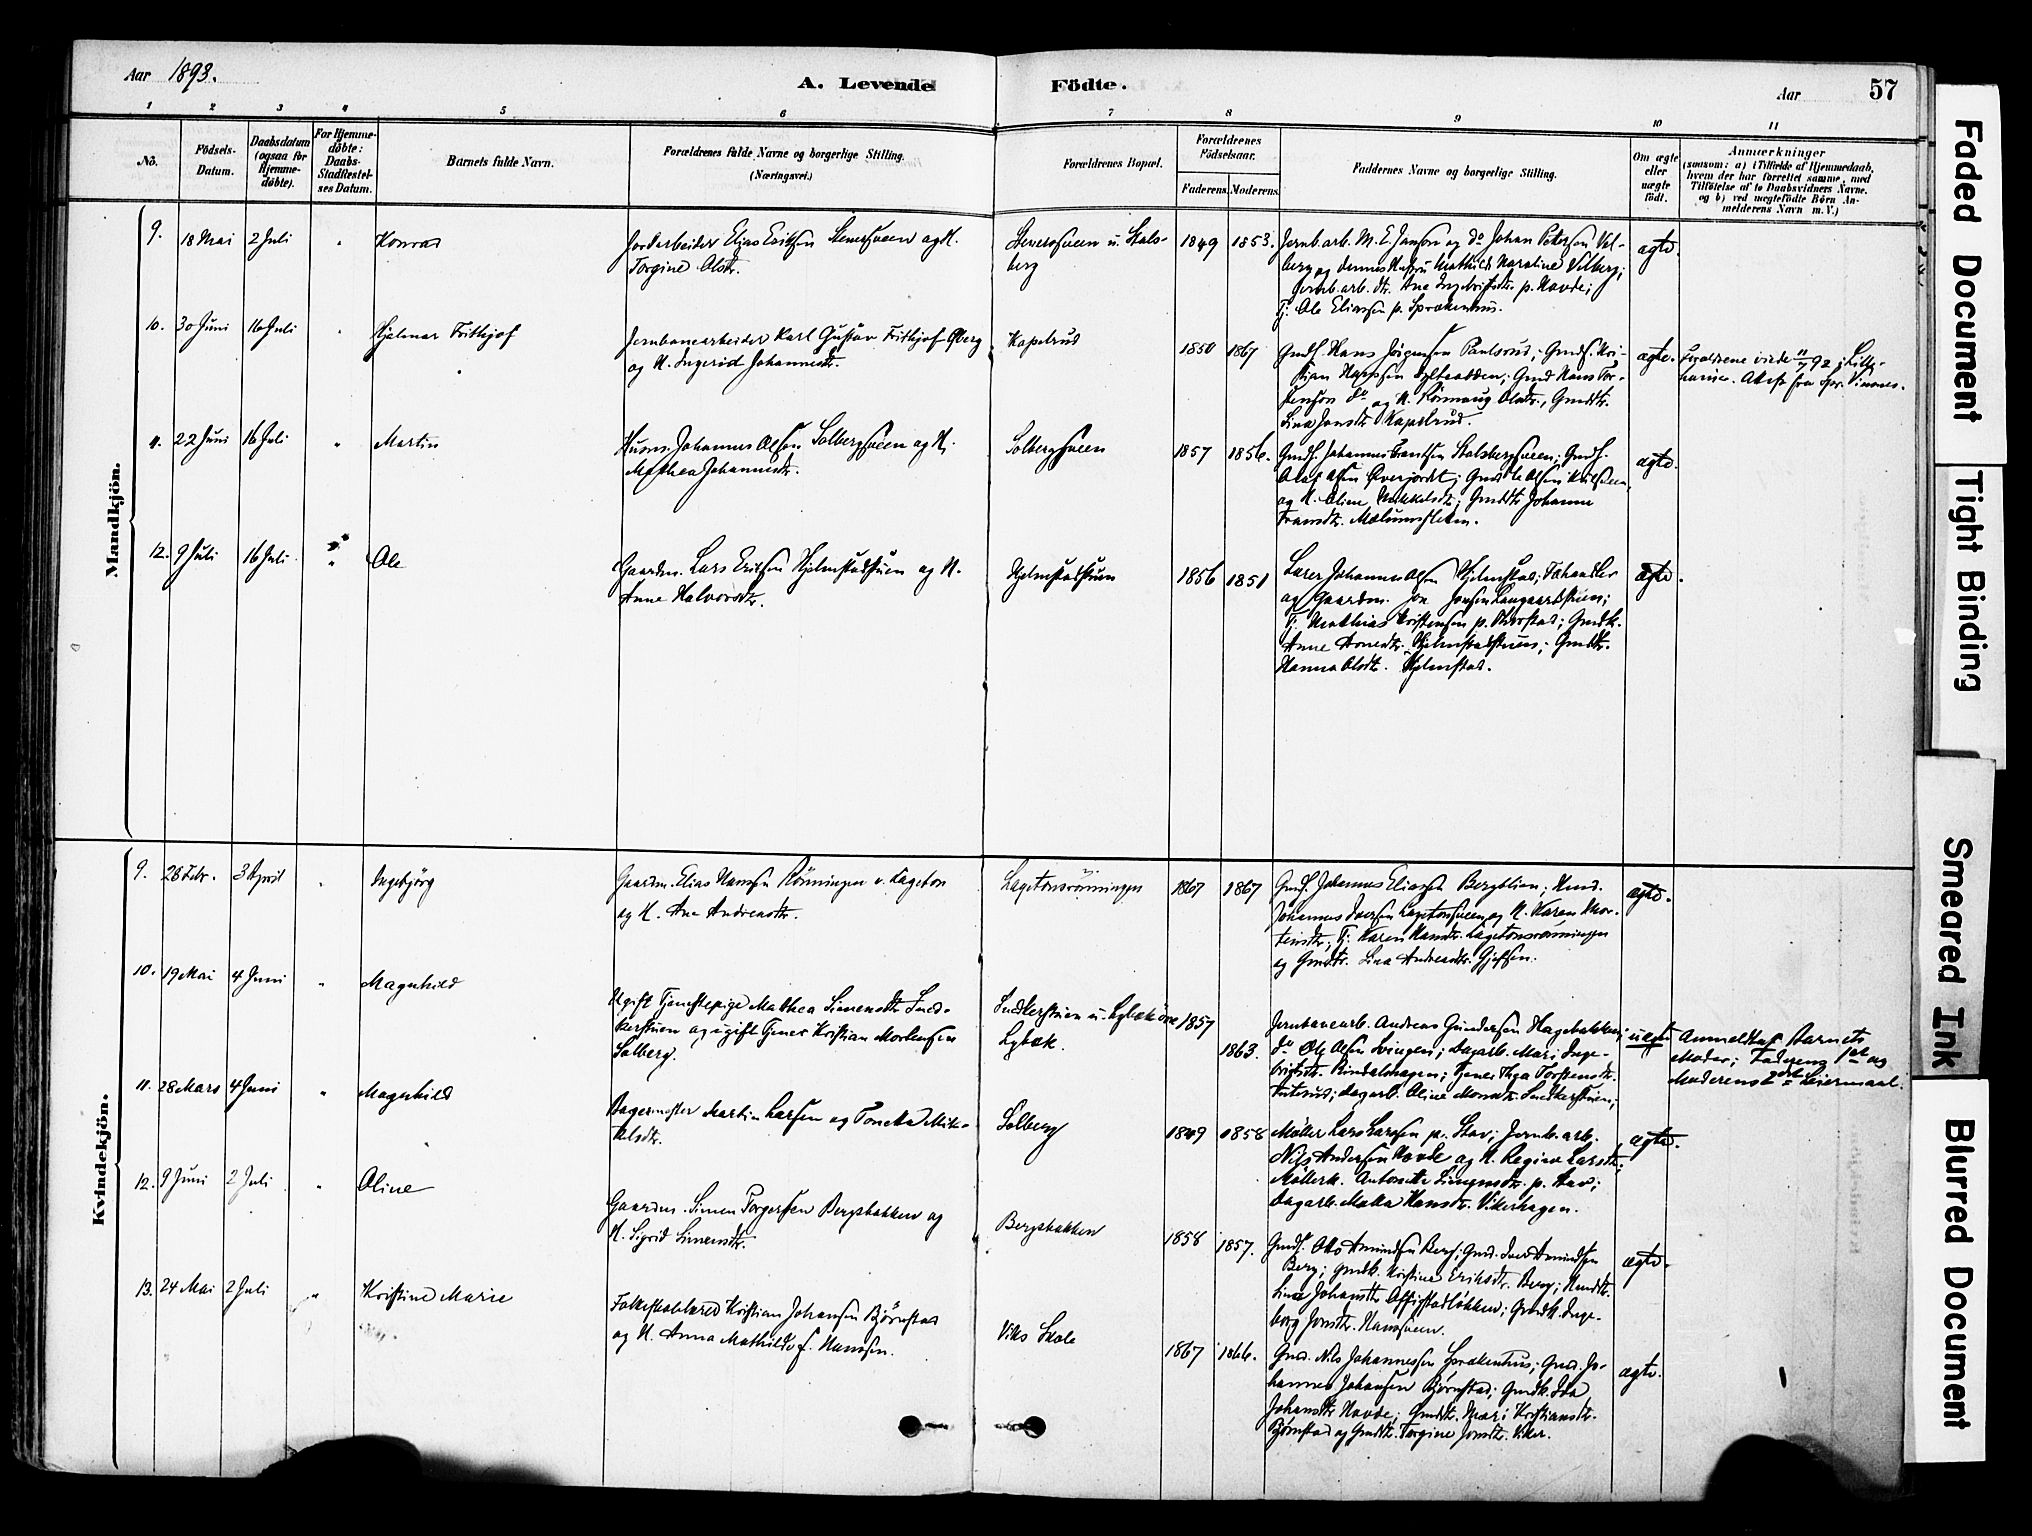 Aar 1893.
A. Levende Födte.
Aar
57
1 2 3 4 5 6 7 8 9 10 11
No.
Födsels-
Datum.
Daabsdatum
(ogsaa for
Hjemme-
döbte).
For Hjemme-
döbte:
Daabs-
Stadfæstel-
ses Datum.
Barnets fulde Navn.
Forældrenes fulde Navne og borgerlige Stilling.
(Næringsvei.)
Forældrenes Bopæl.
Forældrenes
Födselsaar.
Faderens. Moderens.
Faddernes Navne og borgerlige Stilling.
Om ægte
eller
uægte
födt.
Anmærkninger
(saasom: a) i Tilfælde af Hjemmedaab,
hvem der har forrettet samme, med
Tilföielse af to Daabsvidners Navne,
og b) ved uægtefödte Börn An-
melderens Navn m. V.)
Mandkjön.
9. 18 Mai 2 Juli " Konrad
Jordarbeider Elias Eriksen Steversveen og K.
Torgine Olsdtr.
Steversveen u. Stals-
berg
1849 1853.
Jernb.arb. M. E. Jansen og do Johan Petersen Vel-
berg og dennes Hustru Mathilde Karoline Velberg;
Jernb.arb. dtr. Ane Ingebrigtsdtr. p. Hovde;
Tj. Ole Eliassen p. Sprækenhus.
ægte.
10. 30 Juni 16 Juli " Hjalmar Frithjof
Jernbanearbeider Karl Gustav Frithjof Öberg
og K. Ingerid Johannesdtr.
Kapelrud
1850 1867
Gmds. Hans Jørgensen Paulsrud; Gmds. Kri-
stian Hanssen; Gmd Hans Tor-
stensen do og K. Rönnaug Olsdtr., Gmdstr.
Lina Jonsdtr Kapelrud.
ægte.
Forældrene viede 11/7 92 i Lille-
hammer. Attest fra Spr. Vinsnes.
11. 22 Juni 16 Juli " Martin
Husm. Johannes Olsen Solbergsveen og K.
Mathea Johannesdtr.
Solbergsveen
1857 1856.
Gmds. Johannes Frantsen Stalsbergsveen; Gmds.
Olaf Olsen Överjordet; Gmd Ole Olsen
og K. Oline Mikkelsdtr; Gmdstr Johanne
Fransdtr. Mælumsletten.
ægte.
12. 9 Juli 16 Juli " Ole
Gaardm. Lars Eriksen Hjelmstadstuen og K.
Anne Halvorsdtr.
Hjelmstadstuen
1856 1851
Lærer Johannes Olsen Hjelmstad; Fhandler
og Gaardm. Jon Jonsen Langaardstuen;
Tj. Mathias Kristensen p. Skorstad; Gmdk.
Anne Arnesdtr. Hjelmstadstuen; Gmdstr.
Hanna Olsdtr. Hjelmstad.
ægte.
Kvindekjön.
9. 28 Febr. 3 April " Ingebjörg
Gaardm. Elias Hanssen Rönningen v. Lageton
og K. Ane Andreasdtr.
Lagetonsrönningen
1867 1867
Gmds. Johannes Eliassen Bergslien; Hmd.
Johannes Iversen Lagetonsveen og K. Karen Mor-
tensdtr; Tj. Karen Hansdtr. Lagetonsrönningen
og Gmdstr. Lina Andreasdtr. Gjefsen.
ægte.
10. 19 Mai 4 Juni " Magnhild
Ugift Tjenestepige Mathea Simensdtr Sned-
kerstuen og ugift Tjener Kristian Mortensen
Solberg.
Snedkerstuen u. Lybækøne
Lybæk.
1857
1863.
Jernbanearb. Andreas Gundersen Hagebakken;
do Ole Olsen Svingen; Dagarb. Mari Inge-
brigtsdtr. Rindalshagen; Tjener Thea Torstensdtr.
; Dagarb. Oline Monsdtr. Snedkerstuen;
uægte
Anmeldt af Barnets
Moder; Faderens 1ste og
Moderens 2det Leiermaal.
11. 28 Mars 4 Juni " Magnhild
Bagermester Martin Larsen og Tonetta Mik-
kelsdtr.
Solberg
1849 1858
Møller Lars Larssen p. Stav; Jernb.arb.
Nils Andersen Hovde og K. Regine Larsdtr;
Møllerk. Antonette Simensdtr. p. Stav;
Dagarb. Matea Hansdtr. Vikerhagen.
ægte.
12. 9 Juni 2 Juli " Oline
Gaardm. Simen Torgersen Bergsbakken og
K. Sigrid Simensdtr.
Bergsbakken
1858 1857.
Gmds. Otto Amundsen Berg; Gmd. Iver Amundsen
Berg; Gmdk. Kristine Eriksdtr. Berg; Hmdstr.
Lina Johansdtr Offigstadløkken; Gmdk. Inge-
borg Jonsdtr. Hansveen.
ægte.
13. 24 Mai 2 Juli " Kristine Marie
Folkeskolelærer Kristian Johansen Björnstad
og K. Anna Mathilde f. Hanssen.
Viks Skole
1867 1866.
Gmd. Nils Johannessen Sprækenhus; Gmd. Jo-
hannes Johansen Björnstad; Gmdk. Ida
Johansdtr Hovde; Gmdstr. Mari Kristiansdtr.
Björnstad og Gmdstr. Torgine Jonsdtr. Viker.
ægte.
Faded Document
Tight Binding
Smeared Ink
Blurred Document